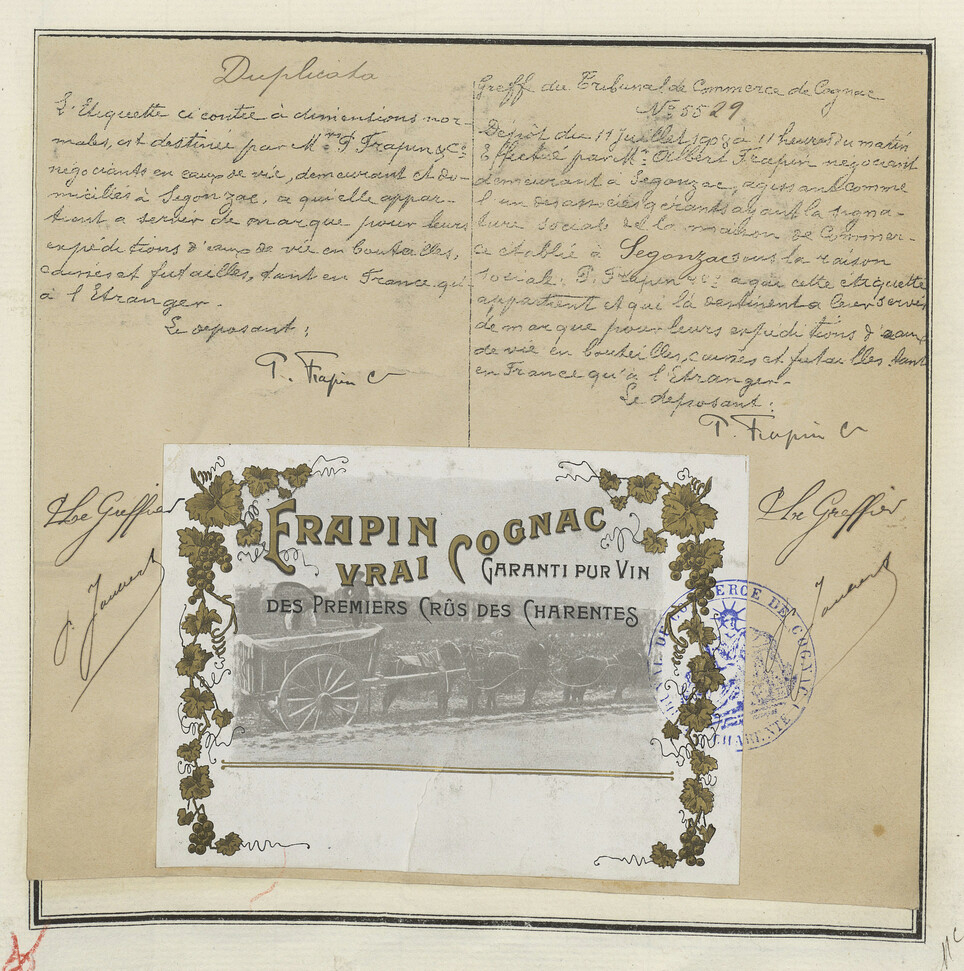 Duplicata
L'Etiquette ci contre à dimensions nor-
males, est destinée par Mrs P. Frapin & Co
négociants en eaux de vie, demeurant et do-
miciliés à Segonzac, a qui elle appar-
tient a servir de marque pour leurs
expéditions d'eaux de vie en bouteilles,
caisses et futailles, tant en France qu'
à l'Etranger.
Le deposant:
P. Frapin Co
Greffe du Tribunal de Commerce de Cognac
No 5529
Dépôt du 11 Juillet 1908 à 11 heures du matin
Effectué par Mr Albert Frapin négociant
demeurant à Segonzac, agissant comme
l'un des associés gérants ayant la signa-
ture sociale de la maison de Commer-
ce établie à Segonzac sous la raison
sociale: P. Frapin & Co a qui cette étiquette
appartient et qui la destinent a leur servir
de marque pour leurs expéditions d'eaux
de vie en bouteilles, caisses et futailles tant
en France qu'à l'Etranger.
Le deposant:
P. Frapin Co
Le Greffier
Le Greffier
FRAPIN COGNAC
VRAI
GARANTI PUR VIN
DES PREMIERS CRÛS DES CHARENTES
DE COMMERCE DE COGNAC
CHARENTE